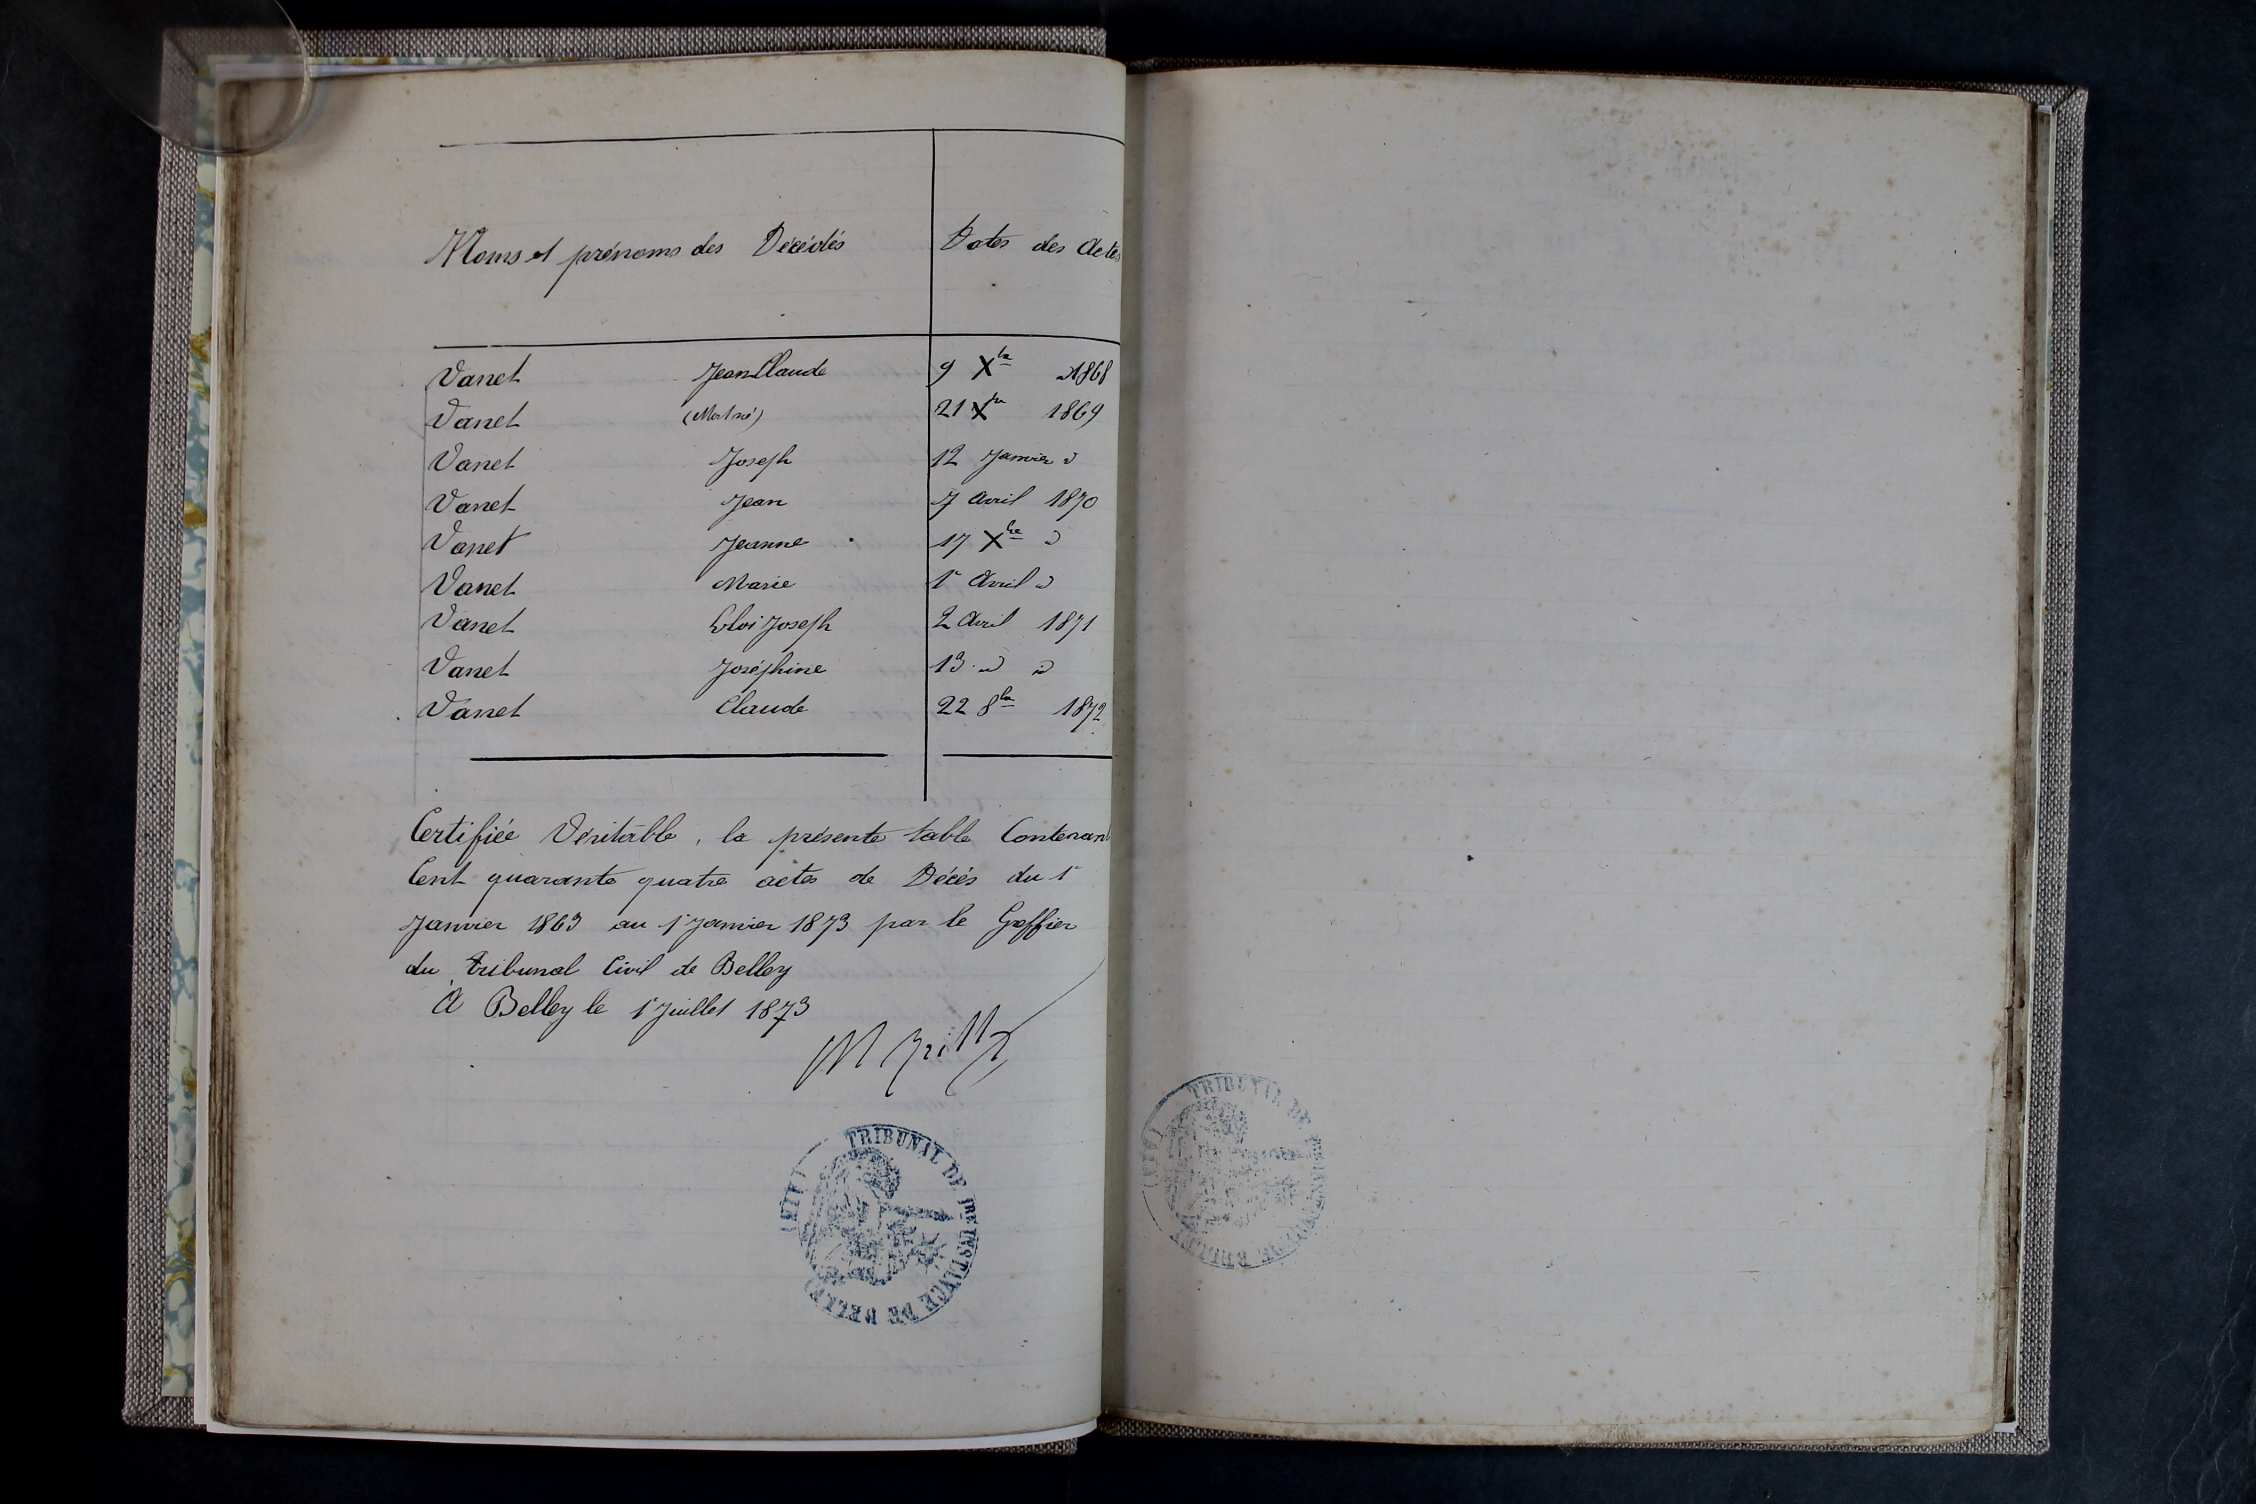 Noms et prénoms des Décédés Dates des Actes
Vanet Jean Claude 9 Xbre 1868
Vanet (Mort né) 21 Xbre 1869
Vanet Joseph 12 Janvier "
Vanet Jean 7 Avril 1870
Vanet Jeanne 17 Xbre "
Vanet Marie 1r Avril "
Vanet Eloi Joseph 2 Avril 1871
Vanet Joséphine 13 " "
Vanet Claude 22 8bre 1872
Certifiée Véritable, la présente table Contenant
Cent quarante quatre actes de Décès du 1r
Janvier 1863 au 1r Janvier 1873 par le Greffier
du Tribunal Civil de Belley
A Belley le 1r Juillet 1873
TRIBUNAL DE 1RE INSTANCE DE BELLEY
TRIBUNAL DE